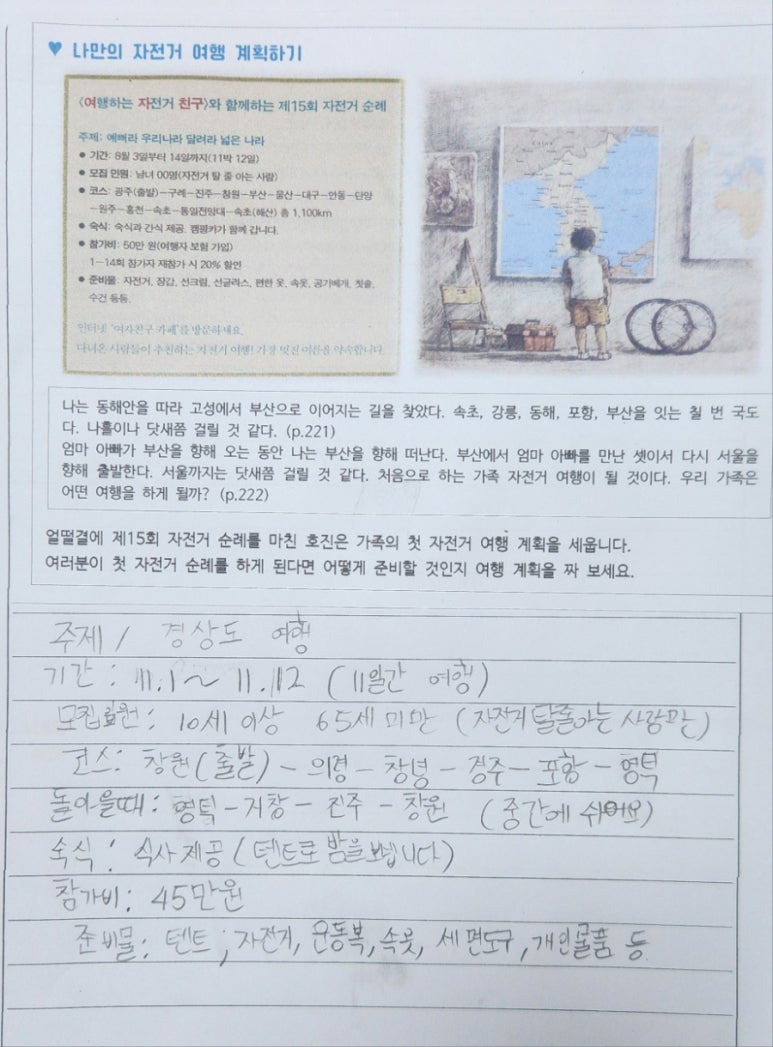 ♥ 나만의 자전거 여행 계획하기
〈여행하는 자전거 친구〉와 함께하는 제15회 자전거 순례
주제: 예뻐라 우리나라 달려라 넓은 나라
● 기간: 8월 3일부터 14일까지(11박 12일)
● 모집 인원: 남녀 00명(자전거 탈 줄 아는 사람)
● 코스: 광주(출발)-구례-진주-창원-부산-울산-대구-안동-단양
-원주-홍천-속초-통일전망대-속초(해산) 총 1,100km
● 숙식: 숙식과 간식 제공. 캠핑카가 함께 갑니다.
● 참가비: 50만 원(여행자 보험 가입)
1-14회 참가자 재참가 시 20% 할인
● 준비물: 자전거, 장갑, 선크림, 선글라스, 편한 옷, 속옷, 공기베개, 칫솔,
수건 등등.
인터넷 '여자친구 카페'를 방문하세요.
다녀온 사람들이 추천하는 자전거 여행! 가장 멋진 여름을 약속합니다.
CHINA
나는 동해안을 따라 고성에서 부산으로 이어지는 길을 찾았다. 속초, 강릉, 동해, 포항, 부산을 잇는 칠 번 국도
다. 나흘이나 닷새쯤 걸릴 것 같다. (p.221)
엄마 아빠가 부산을 향해 오는 동안 나는 부산을 향해 떠난다. 부산에서 엄마 아빠를 만난 셋이서 다시 서울을
향해 출발한다. 서울까지는 닷새쯤 걸릴 것 같다. 처음으로 하는 가족 자전거 여행이 될 것이다. 우리 가족은
어떤 여행을 하게 될까? (p.222)
얼떨결에 제15회 자전거 순례를 마친 호진은 가족의 첫 자전거 여행 계획을 세웁니다.
여러분이 첫 자전거 순례를 하게 된다면 어떻게 준비할 것인지 여행 계획을 짜 보세요.
주제 / 경상도 여행
기간 : 11.1 ~ 11.12 (11일간 여행)
모집인원: 10세 이상 65세 미만 (자전거 탈줄아는 사람만)
코스: 창원(출발) - 의령 - 창녕 - 경주 - 포항 - 영덕
돌아올때: 영덕 - 거창 - 진주 - 창원 (중간에 쉬어요)
숙식 : 식사제공 (텐트로 밤을 보냅니다)
참가비: 45만원
준비물: 텐트, 자전거, 운동복, 속옷, 세면도구, 개인물품 등